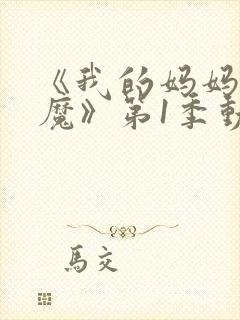 《我的妈妈
魔》第1季動
馬交